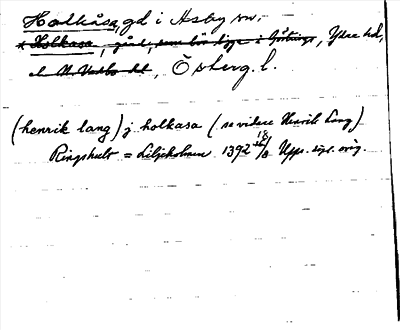 Holkåsa, gd i Asby sn.
* Holkasa, gård, som bör ligga i Göstrings, Ydre hd,
el. N. Vedbo hd, Österg. l.
(henrik lang) j holkasa (se vidare Henrik Lang)
Ringshult = Liljeholmen 1392 18/8 Upps. orig.